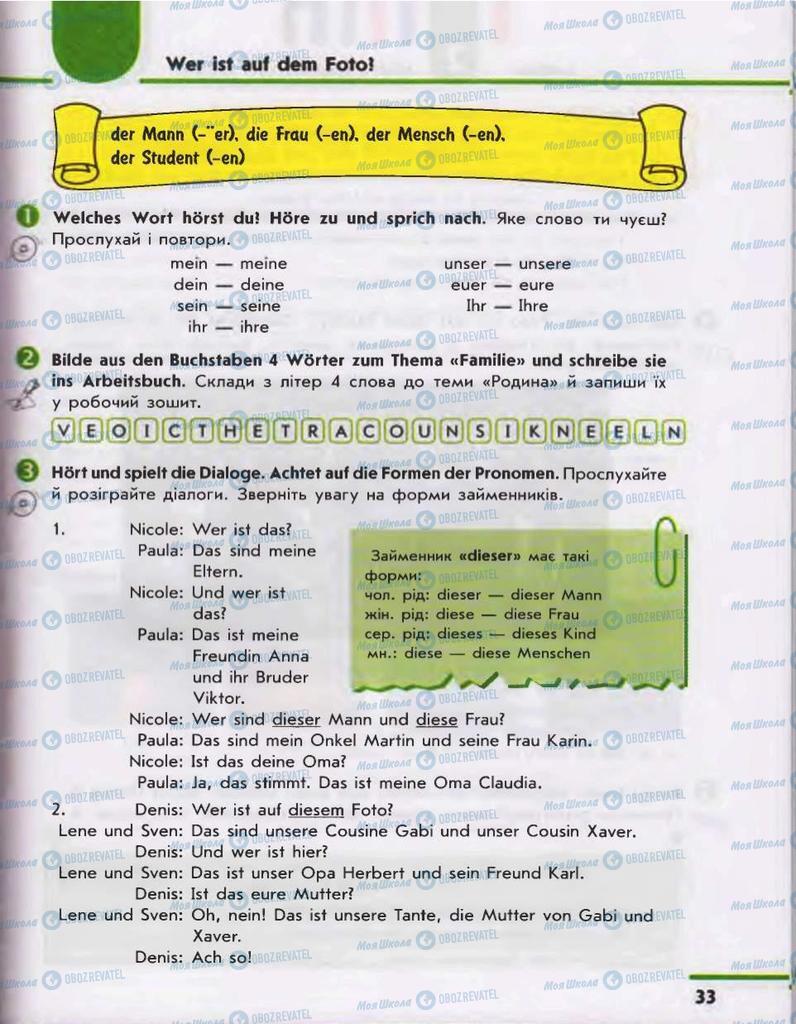 Wer ist auf dem Foto?
der Mann (-¨er), die Frau (-en), der Mensch (-en),
der Student (-en)
1 Welches Wort hörst du? Höre zu und sprich nach. Яке слово ти чуєш?
Прослухай і повтори.
mein — meine unser — unsere
dein — deine euer — eure
sein — seine Ihr — Ihre
ihr — ihre
2 Bilde aus den Buchstaben 4 Wörter zum Thema «Familie» und schreibe sie
ins Arbeitsbuch. Склади з літер 4 слова до теми «Родина» й запиши їх
у робочий зошит.
V E O I C T H E T R A C O U N S I K N E E L N
3 Hört und spielt die Dialoge. Achtet auf die Formen der Pronomen. Прослухайте
й розіграйте діалоги. Зверніть увагу на форми займенників.
1. Nicole: Wer ist das?
Paula: Das sind meine
Eltern.
Nicole: Und wer ist
das?
Paula: Das ist meine
Freundin Anna
und ihr Bruder
Viktor.
Займенник «dieser» має такі
форми:
чол. рід: dieser — dieser Mann
жін. рід: diese — diese Frau
сер. рід: dieses — dieses Kind
мн.: diese — diese Menschen
Nicole: Wer sind dieser Mann und diese Frau?
Paula: Das sind mein Onkel Martin und seine Frau Karin.
Nicole: Ist das deine Oma?
Paula: Ja, das stimmt. Das ist meine Oma Claudia.
2. Denis: Wer ist auf diesem Foto?
Lene und Sven: Das sind unsere Cousine Gabi und unser Cousin Xaver.
Denis: Und wer ist hier?
Lene und Sven: Das ist unser Opa Herbert und sein Freund Karl.
Denis: Ist das eure Mutter?
Lene und Sven: Oh, nein! Das ist unsere Tante, die Mutter von Gabi und
Xaver.
Denis: Ach so!
33